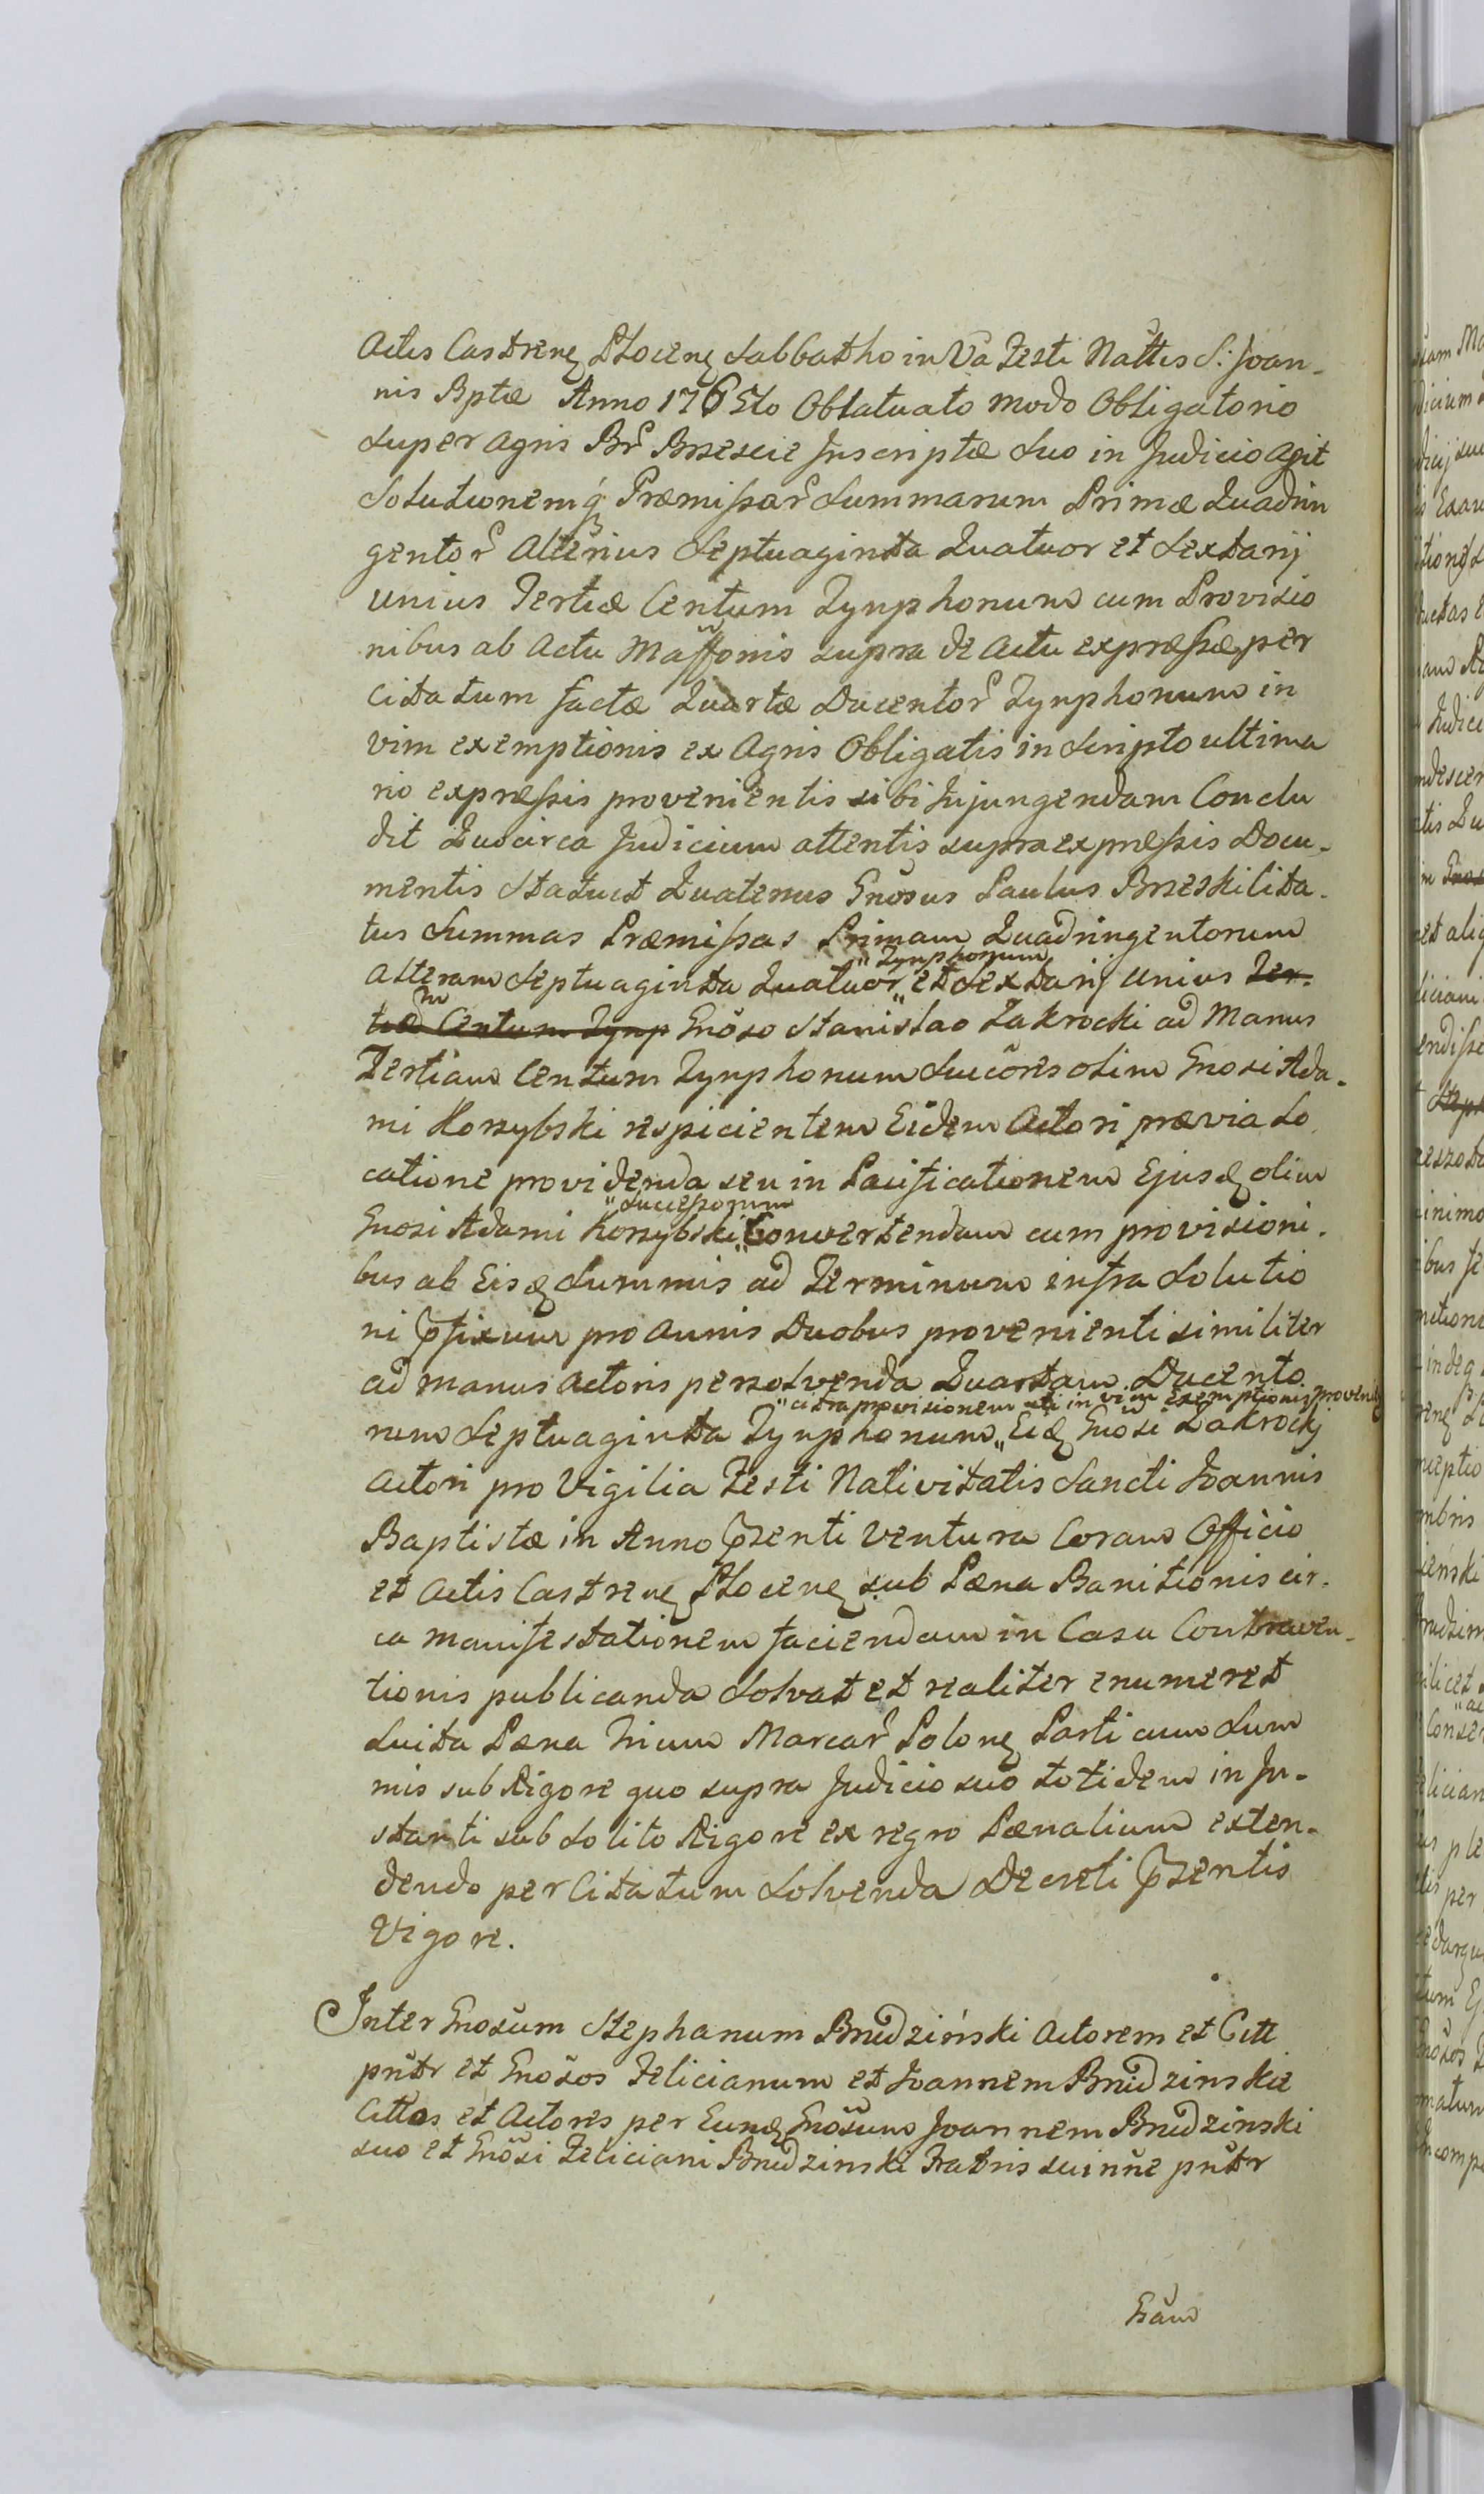 Actis Castren̨ Plocen̨ Sabbatho in Va Festi Nattis S: Joan-
nis Bptæ Anno 1765to Oblatuato modo Obligatorio
super agris Br̃ Brzescie Inscriptæ suo in Judicio agit
Solutionemq́ Præmissar̃ Summarum Primæ Quadrin
gentor̃ Alterius Septuaginta Quatuor et Sextarij
unius Tertiæ Centum Tynphonum cum Provisio
nibus ab Actu supra de actu expressæ per
Citatum factæ Quartæ Ducentor̃ Tynphonum in
vim exemptionis ex Agris Obligatis in Scripto ultima
rio expressis provenientis sibi Injungendam Conclu
dit Quocirca Judicium attentis supra expressis Docu-
mentis Statuit Quatenus Gnõsus Paulus Brzeski Cita-
tus Summas Præmissas Primam Quadringentorum
"Tynphonum
Alteram Septuaginta Quatuor„ et Sextarij unius Ter-
tiæ Centum Tynp Gnõso Stanislao Zakrocki ad Manus
Tertiam Centum Tynphonum Succõres olim Gnosi Ada-
mi Korzybski respicientem Eidem Actori prævia Lo
catione providenda seu in Pacificationem Ejusd̨ olim
"Successorum
Gnosi Adami Korzybski„ Convertendam cum provisioni-
bus ab Eisd̨ Summis ad Terminum infra Solutio
ni p̃fixum pro Annis Duobus provenienti similiter
ad manus Actoris persolvenda Quartam Ducento
"citra provisionem uti in vim exemptionis proveni
rum Septuaginta Tynphonum„ Eid̨ Gnosi Zakrocki
Actori pro Vigilia Festi Nativitatis Sancti Joannis
Baptistæ in Anno p̃senti ventura Coram Officio
et Actis Castren̨ Plocen̨ sub Pæna Banitionis cir-
ca manifestationem faciendam in Casu Contraven-
tionis publicanda Solvat et realiter enumeret
Luita Pæna Trium Marcar̃ Polon̨ Parti cum Sum
mis sub Rigore quo supra Judicio suo totidem in In-
stanti sub Solito Rigore ex regro Pænalium exten-
dendo per Citatum Solvenda Decreti p̃sentis
Vigore.
Inter Gnosum Stephanum Brudziński Actorem et Citt
pñtr et Gnõsos Felicianum et Joannem Brudzinskie
Cittos et Actores per Eund̨ Gnõsum Joannem Brudzinski
suo et Gnõsi Feliciani Brudzinski Fratris sui nñe pñtr